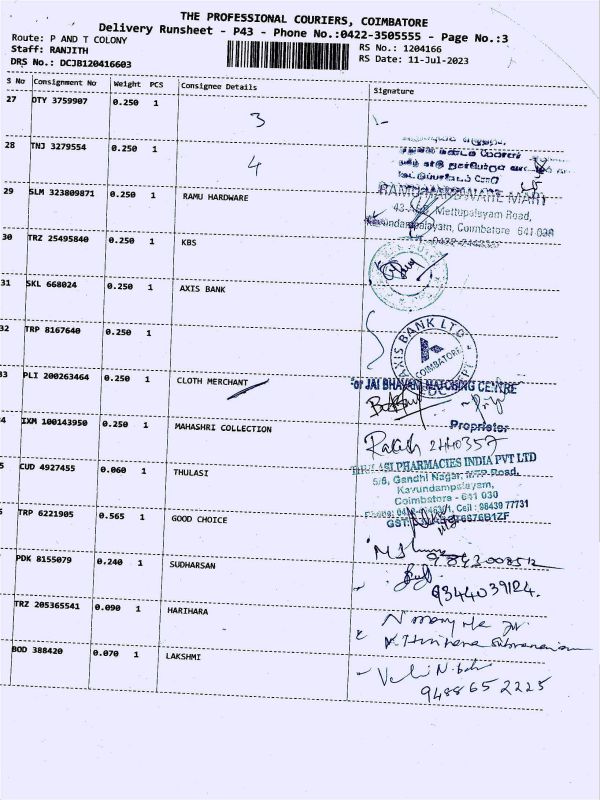 THE PROFESSIONAL COURIERS, COIMBATORE
Delivery Runsheet - P43 - Phone No.:0422-3505555 - Page No.:3
Route: P AND T COLONY
RS No.: 1204166
Staff: RANJITH
RS Date: 11-Jul-2023
DRS No.: DCJB120416603
S No Consignment No Weight PCS Consignee Details Signature
27 DTY 3759907 0.250 1 3
28 TNJ 3279554 0.250 1 4
29 SLM 323809871 0.250 1 RAMU HARDWARE
RAMU HARDWARE MART
Mettupalayam Road,
Coimbatore 641 038
30 TRZ 25495840 0.250 1 KBS
31 SKL 668024 0.250 1 AXIS BANK
32 TRP 8167640 0.250 1
AXIS BANK LTD
COIMBATORE
33 PLI 200263464 0.250 1 CLOTH MERCHANT
For JAI BHAVANI MATCHING CENTRE
Proprietor
4 IXM 100143950 0.250 1 MAHASHRI COLLECTION
Rakesh 2440357
5 CUD 4927455 0.060 1 THULASI
THULASI PHARMACIES INDIA PVT LTD
5/6, Gandhi Nagar, MTP Road,
Kavundampalayam,
Coimbatore - 641 030
Cell : 98439 77731
GST:
TRP 6221905 0.565 1 GOOD CHOICE
PDK 8155079 0.240 1 SUDHARSAN
9344039124.
TRZ 205365541 0.090 1 HARIHARA
BOD 388420 0.070 1 LAKSHMI
9488652225